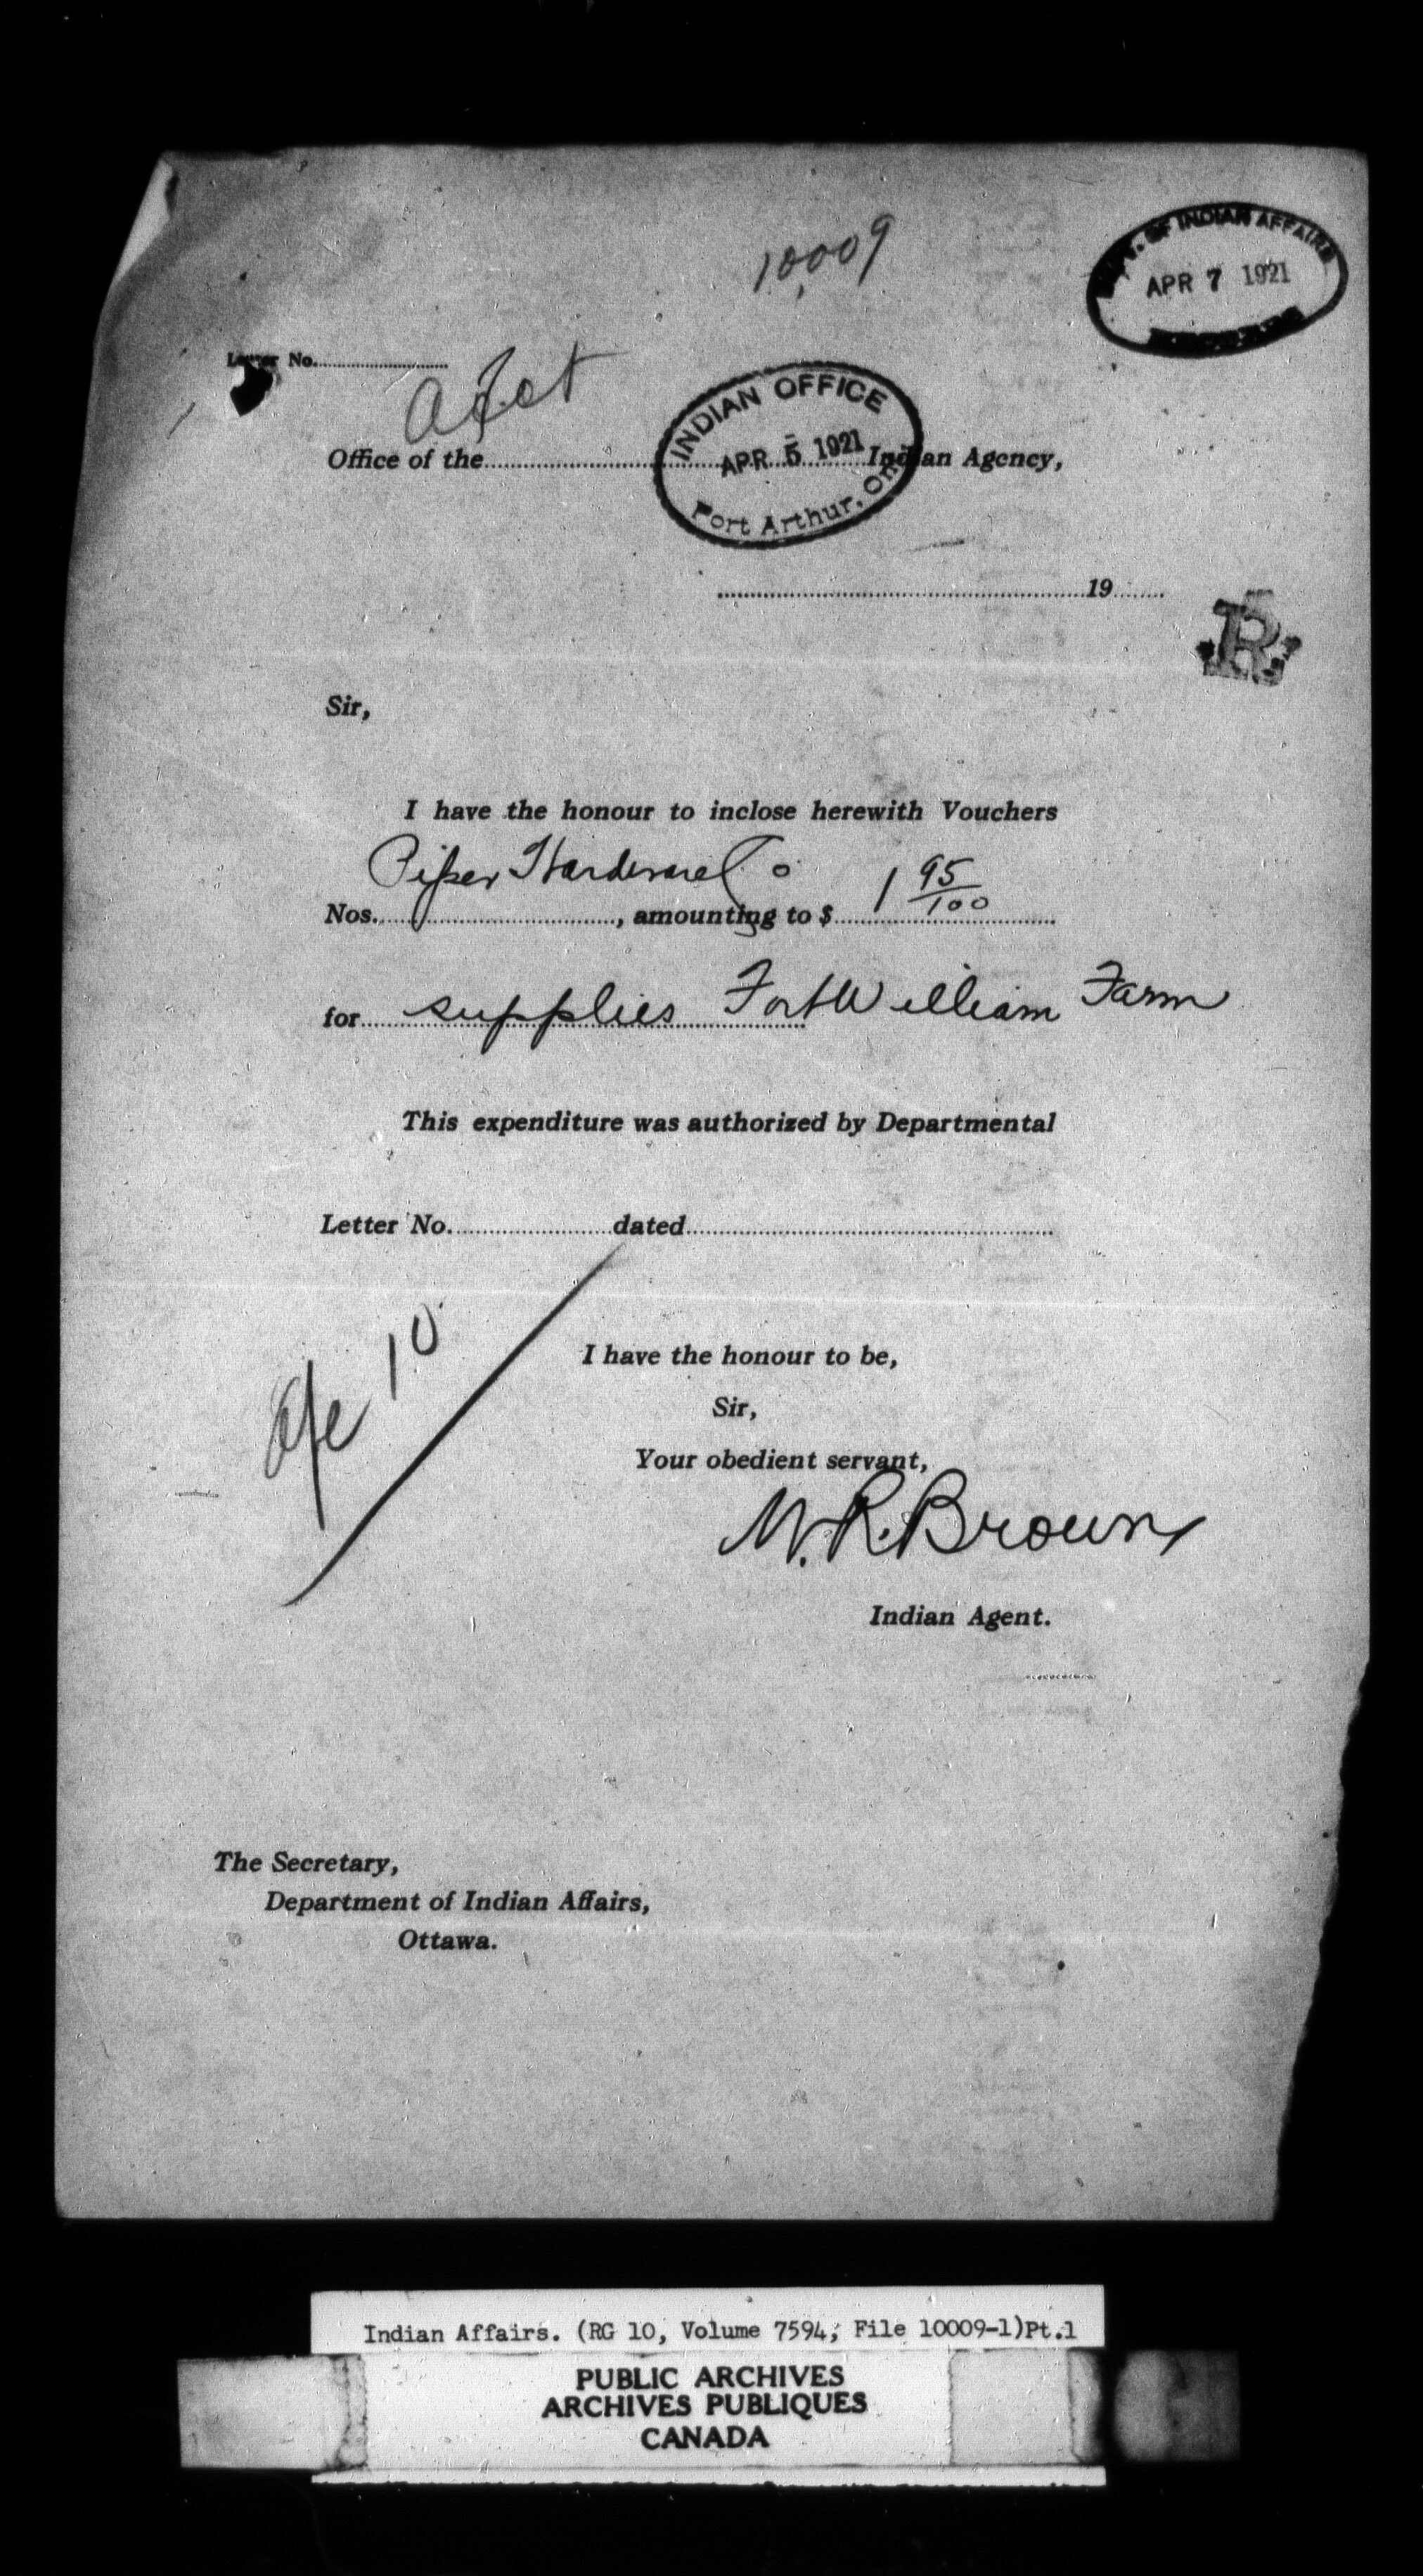 10,009
DEPT. OF INDIAN AFFAIRS
APR 7 1921
Letter No.
INDIAN OFFICE
APR 5 1921
Port Arthur. Ont
Office of the Indian Agency,
19
R
Sir,
I have the honour to inclose herewith Vouchers
Piper Hardware Co
Nos. , amounting to $ 1 95/100
for supplies Fort William Farm
This expenditure was authorized by Departmental
Letter No. dated
10
I have the honour to be,
Sir,
Your obedient servant,
W.R. Brown
Indian Agent.
The Secretary,
Department of Indian Affairs,
Ottawa.
Indian Affairs. (RG 10, Volume 7594, File 10009-1)Pt.1
PUBLIC ARCHIVES
ARCHIVES PUBLIQUES
CANADA